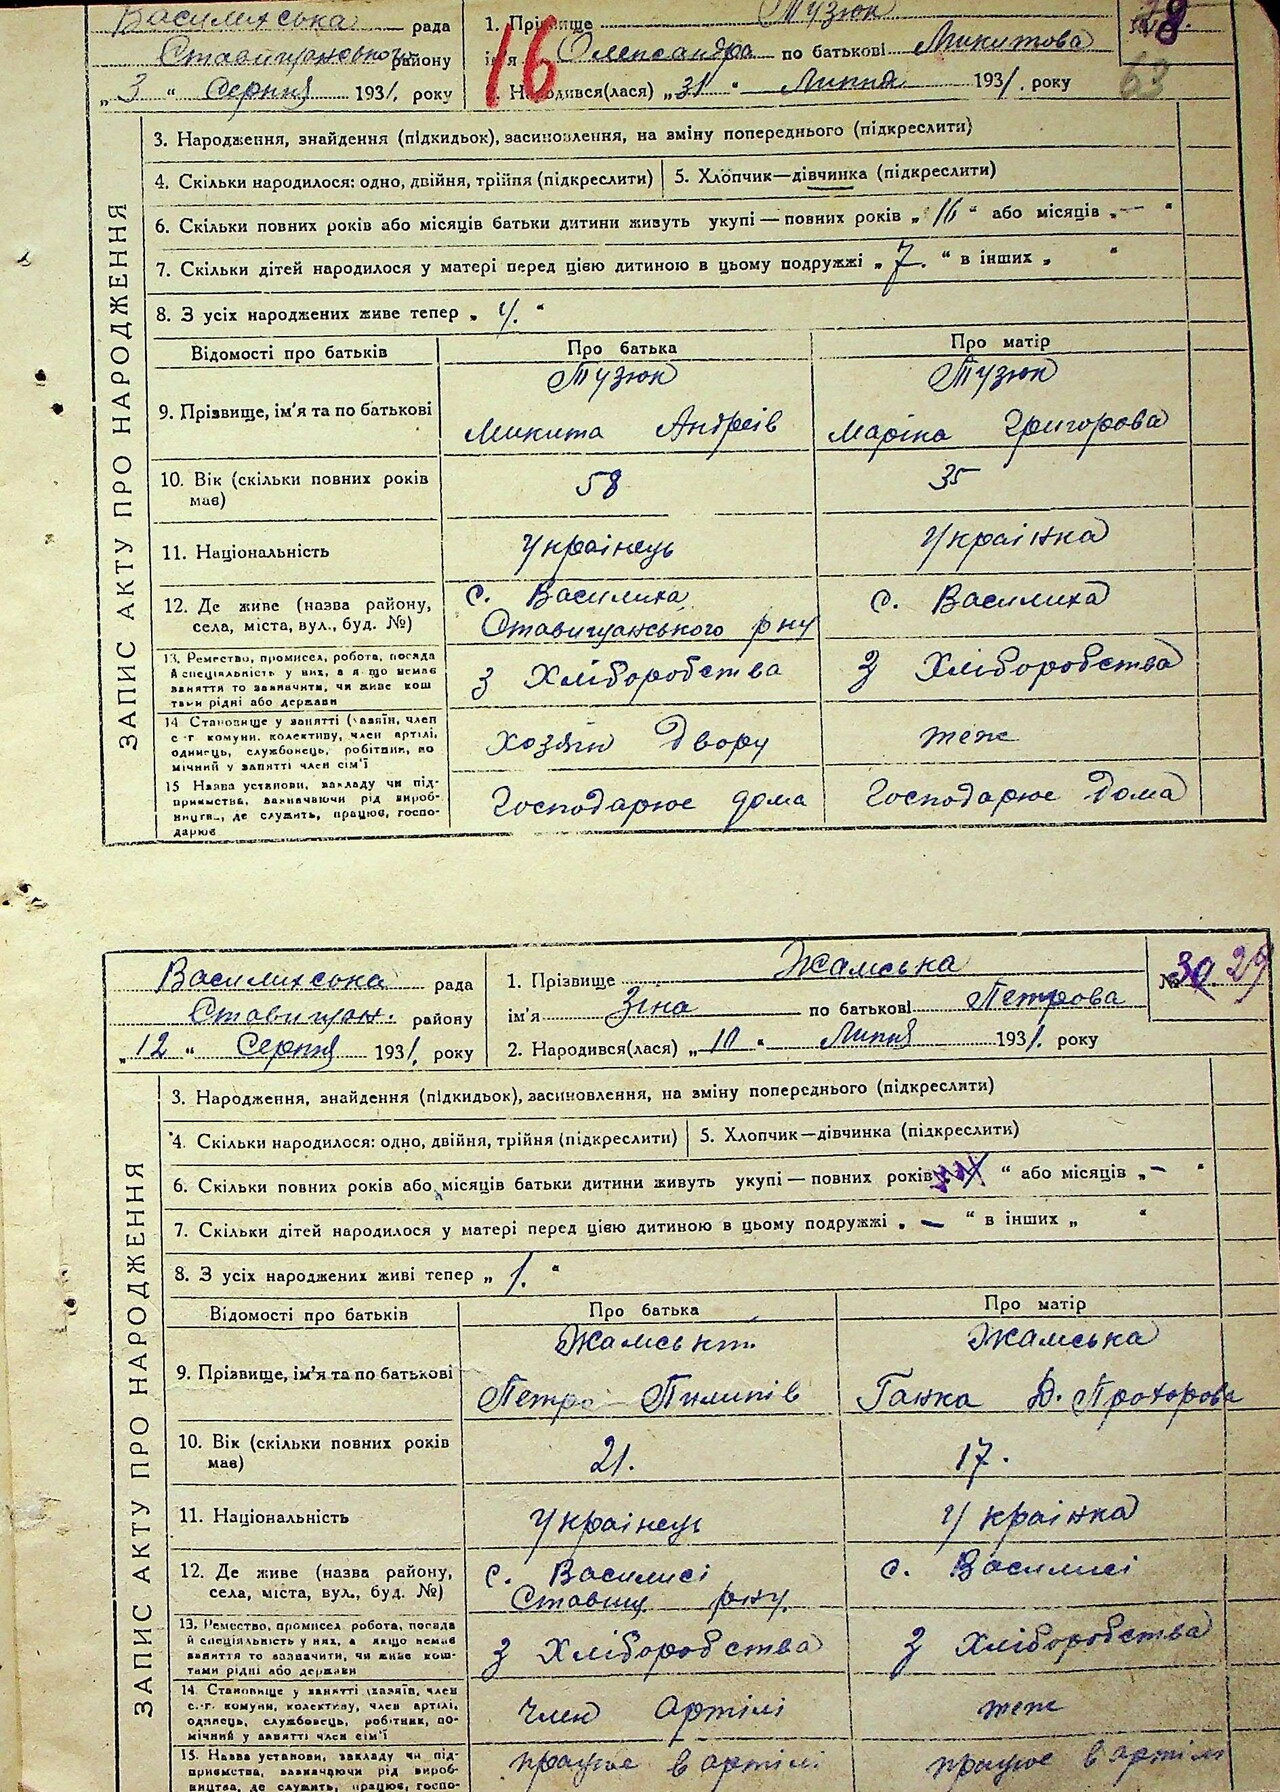 Василихська рада
Ставищанського району
„ 3 “ Серпня 1931. року
1. Прізвище Тузюк
ім'я Олександра по батькові Микитова
Народився(лася) „ 31 “ Липня 1931. року
28
16
63
ЗАПИС АКТУ ПРО НАРОДЖЕННЯ
3. Народження, знайдення (підкидьок), засиновлення, на зміну попереднього (підкреслити)
4. Скільки народилося: одно, двійня, трійня (підкреслити)
5. Хлопчик—дівчинка (підкреслити)
6. Скільки повних років або місяців батьки дитини живуть укупі — повних років „ 16 “ або місяців „ — “
7. Скільки дітей народилося у матері перед цією дитиною в цьому подружжі „ 7. “ в інших „ “
8. З усіх народжених живе тепер „ 4. “
Відомості про батьків Про батька Про матір
9. Прізвище, ім'я та по батькові
Тузюк Тузюк
Микита Андреів Маріка Григорова
10. Вік (скільки повних років має) 58 35
11. Національність Українець Українка
12. Де живе (назва району, села, міста, вул., буд. №)
с. Василиха с. Василиха
Ставищанського р ну
13. Ремество, промисел, робота, посада
й спеціальність у них, а якщо немає
заняття то зазначити, чи живе кош
тами рідні або держави
З Хліборобства З Хліборобства
14 Становище у занятті (хазяїн, член
с.-г комуни, колективу, член артілі,
одинець, службовець, робітник, по
мічний у занятті член сім'ї
Хозяін двору теж
15 Назва установи, закладу чи під-
приємства, зазначаючи рід вироб-
ництв., де служить, працює, госпо-
дарює
Господарює дома Господарює дома
Василихська рада
Ставищан. району
„ 12 “ Серпня 1931. року
1. Прізвище Жамська
ім'я Зіна по батькові Петрова
2. Народився(лася) „ 10 “ Липня 1931. року
№ 30. 29
ЗАПИС АКТУ ПРО НАРОДЖЕННЯ
3. Народження, знайдення (підкидьок), засиновлення, на зміну попереднього (підкреслити)
4. Скільки народилося: одно, двійня, трійня (підкреслити)
5. Хлопчик—дівчинка (підкреслити)
6. Скільки повних років або місяців батьки дитини живуть укупі — повних років “ або місяців „ — “
7. Скільки дітей народилося у матері перед цією дитиною в цьому подружжі „ — “ в інших „ “
8. З усіх народжених живі тепер „ 1. “
Відомості про батьків Про батька Про матір
9. Прізвище, ім'я та по батькові
Жамськи. Жамська
Петро Пилипів Ганка Д. Прохорова
10. Вік (скільки повних років має) 21. 17.
11. Національність Українець Українка
12. Де живе (назва району, села, міста, вул., буд. №)
с. Василисі с. Василисі
Ставищ рну.
13. Ремество, промисел, робота, посада
й спеціальність у них, а якщо немає
заняття то зазначити, чи живе кош-
тами рідні або держави
З Хліборобства З Хліборобства
14. Становище у занятті (хазяїн, член
с.-г. комуни, колективу, член артілі,
одинець, службовець, робітник, по-
мічний у занятті член сім'ї
Член артілі теж
15. Назва установи, закладу чи під-
приємства, зазначаючи рід вироб-
ництва, де служить, працює, госпо-
працює в артілі працює в артілі